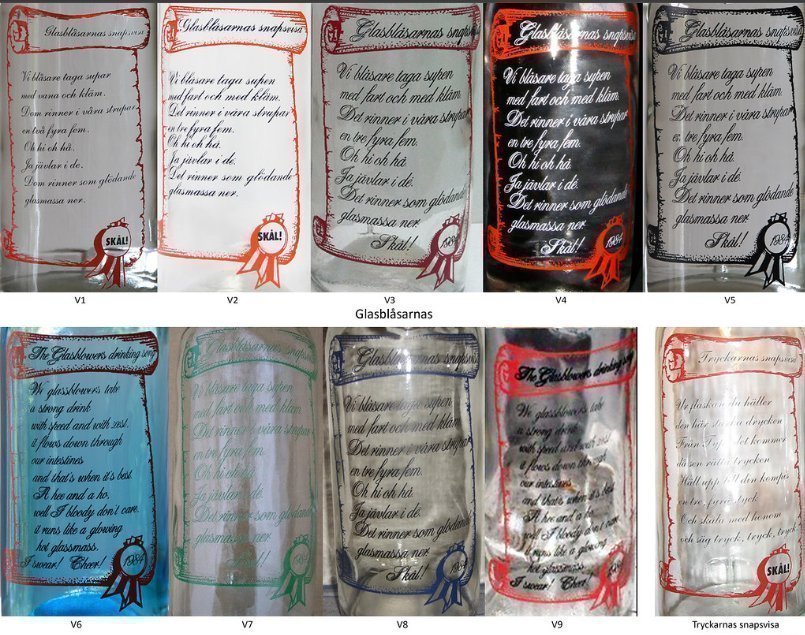 Glasblåsarnas snapsvisa
Vi blåsare taga supar
med vana och kläm.
Dom rinner i våra strupar
en två fyra fem.
Oh hi oh hå.
Ja jävlar i de.
Dom rinner som glödande
glasmassa ner.
SKÅL!
V1
Glasblåsarnas snapsvisa
Vi blåsare taga supen
med fart och med kläm.
Det rinner i våra strupar
en tre fyra fem.
Oh hi oh hå.
Ja jävlar i de.
Det rinner som glödande
glasmassa ner.
SKÅL!
V2
Glasblåsarnas snapsvisa
Vi blåsare taga supen
med fart och med kläm.
Det rinner i våra strupar
en tre fyra fem.
Oh hi oh hå.
Ja jävlar i de.
Det rinner som glödande
glasmassa ner.
Skål!
1984
V3
Glasblåsarnas snapsvisa
Vi blåsare taga supen
med fart och med kläm.
Det rinner i våra strupar
en tre fyra fem.
Oh hi oh hå.
Ja jävlar i de.
Det rinner som glödande
glasmassa ner.
Skål!
1984
V4
Glasblåsarnas snapsvisa
Vi blåsare taga supen
med fart och med kläm.
Det rinner i våra strupar
en tre fyra fem.
Oh hi oh hå.
Ja jävlar i de.
Det rinner som glödande
glasmassa ner.
Skål!
1984
V5
Glasblåsarnas
The Glasblowers drinking song
We glassblowers take
a strong drink
with speed and with zest.
it flows down through
our intestines
and that's when it's best.
A hee and a ho,
well I bloody don't care.
it runs like a glowing
hot glassmass.
I swear! Cheer!
1984
V6
Glasblåsarnas snapsvisa
Vi blåsare taga supen
med fart och med kläm.
Det rinner i våra strupar
en tre fyra fem.
Oh hi oh hå.
Ja jävlar i de.
Det rinner som glödande
glasmassa ner.
Skål!
V7
Glasblåsarnas snapsvisa
Vi blåsare taga supen
med fart och med kläm.
Det rinner i våra strupar
en tre fyra fem.
Oh hi oh hå.
Ja jävlar i de.
Det rinner som glödande
glasmassa ner.
Skål!
1984
V8
The Glasblowers drinking song
We glassblowers take
a strong drink
with speed and with zest.
it flows down through
our intestines
and that's when it's best.
A hee and a ho,
well I bloody don't care.
it runs like a glowing
hot glassmass.
I swear! Cheer!
1984
V9
Tryckarnas snapsvisa
Ur flaskan du häller
den här starka drycken
Från det kommer
då sen
Häll upp till din kompis
en tre, fyra tryck
Och skåla med honom
och säg tryck, tryck, tryck
SKÅL!
Tryckarnas snapsvisa